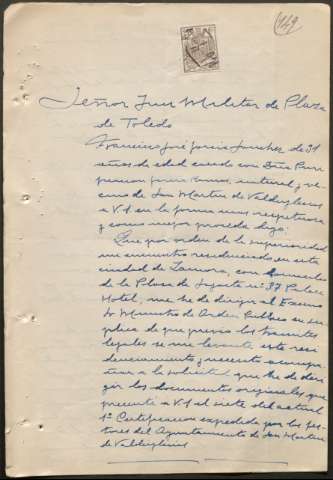 149
Señor Juez Militar de Plaza
de Toledo
Francisco José García Sanchez, de 31
años de edad casado con
natural y ve-
cino de San Martin de Valdeiglesias
a V.I. en la forma mas respetuosa
y como mejor proceda digo:
Que por orden de la superioridad
me encuentro residenciado en esta
ciudad de Zamora, con domicilio
de la Plaza de Sagasta nº 37 Palace
Hotel, me he de dirigir al Excmo
Sr Ministro de Orden Publico en su-
plica de que previo los tramites
legales se me levante este resi-
denciamiento y necesito acompa-
ñar a la solicitud que he de diri-
gir los documentos originales que
presenté a V.I. el siete del actual
1º Certificacion expedida por los ges-
tores del Ayuntamiento de San Martin
de Valdeiglesias